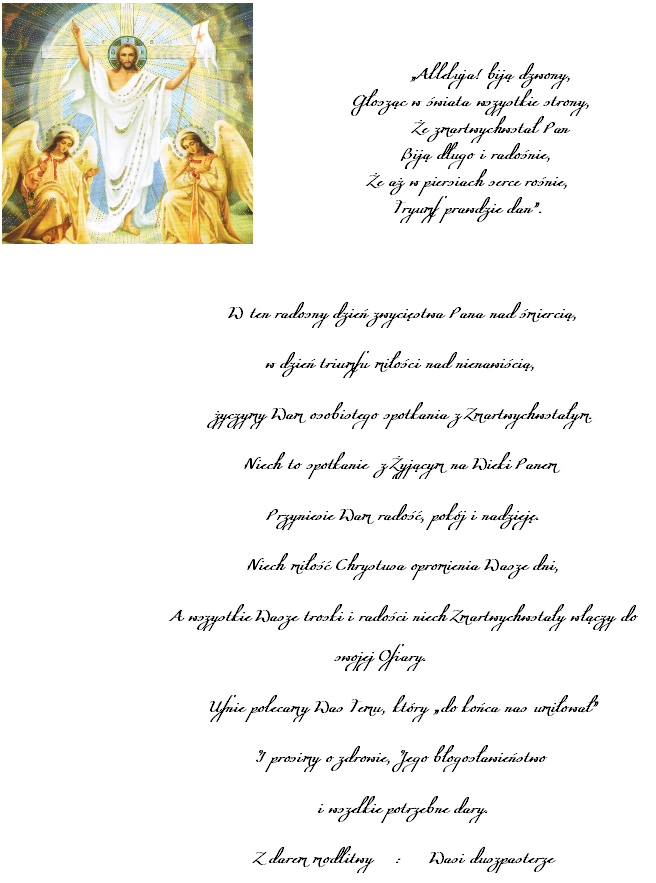 „Alleluja! biją dzwony,
Głosząc w świata wszystkie strony,
Że zmartwychwstał Pan
Biją długo i radośnie,
Że aż w piersiach serce rośnie,
Tryumf prawdzie dan”.
W ten radosny dzień zwycięstwa Pana nad śmiercią,
w dzień triumfu miłości nad nienawiścią,
życzymy Wam osobistego spotkania z Zmartwychwstałym.
Niech to spotkanie z Żyjącym na Wieki Panem
Przyniesie Wam radość, pokój i nadzieję.
Niech miłość Chrystusa opromienia Wasze dni,
A wszystkie Wasze troski i radości niech Zmartwychwstały włączy do
swojej Ofiary.
Ufnie polecamy Was Temu, który „do końca nas umiłował”
I prosimy o zdrowie, Jego błogosławieństwo
i wszelkie potrzebne dary.
Z darem modlitwy : Wasi duszpasterze